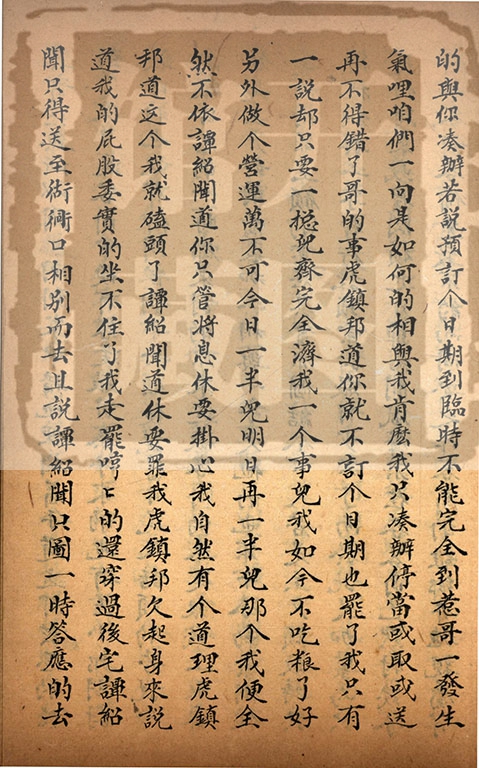 的與你凑辦若説預訂个日期到臨時不能完全到惹哥一發生
氣哩咱們一向是如何的相與我肯麽我只凑辦停當或取或送
再不得錯了哥的事虎鎮邦道你就不訂个日期也罷了我只有
一説却只要一搃兒齊完全濟我一个事兒我如今不吃粮了好
另外做个營運萬不可今日一半兒明日再一半兒那个我便全
然不依譚紹聞道你只管將息休要掛心我自然有个道理虎鎮
邦道这个我就磕頭了譚紹聞道休要罪我虎鎮邦欠起身來説
道我的屁股委實的坐不住了我走罷哼〻的還穿過後宅譚紹
聞只得送至衚衕口相别而去且説譚紹聞只圖一時答應的去